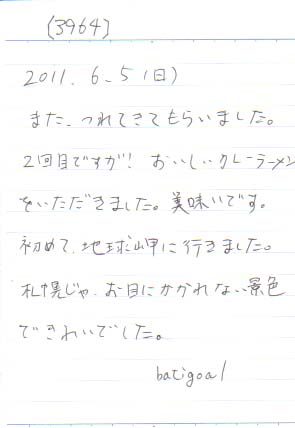 (3964)
2011. 6. 5 (日)
また、つれてきてもらいました。
2回目ですが! おいしいカレーラーメン
をいただきました。美味いです。
初めて、地球岬に行きました。
札幌じゃ、お目にかかれない景色
できれいでした。
batigoal